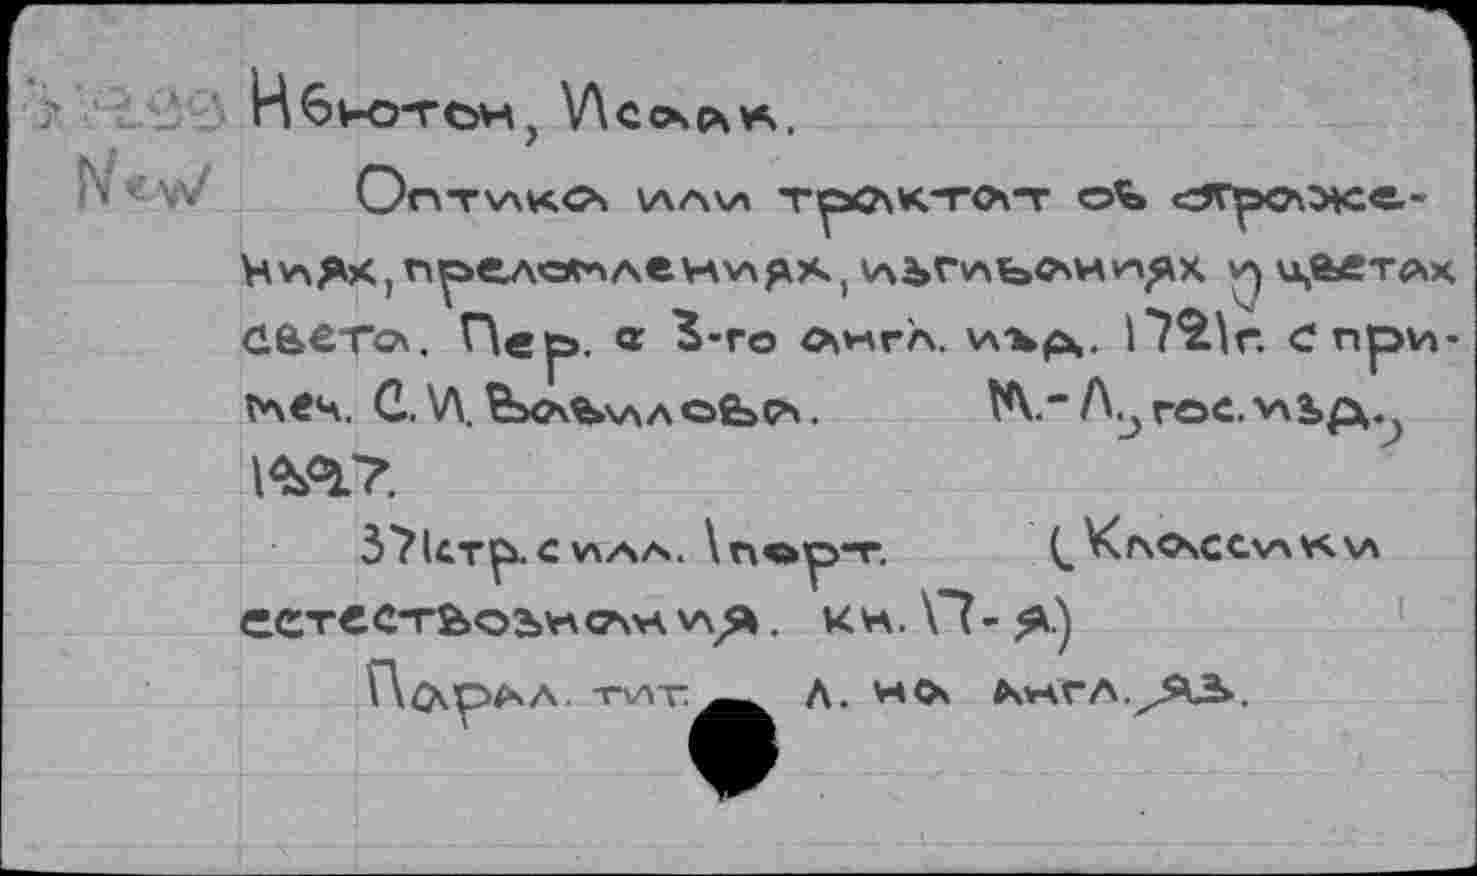 Ньютон, Исаак.
New
Оптика или трактат об отраже-
ниях, преломлениях, изгибаниях и цветах
света. Пер. с 3-го англ. изд. 1721г. с при-
меч. С.И. Вавилова. М.-Л., гос. изд.,
1927.
371стр. с илл. 1 порт. (Классики
естествознания. кн. 17-я)
Парал. тит. л. на англ. яз.